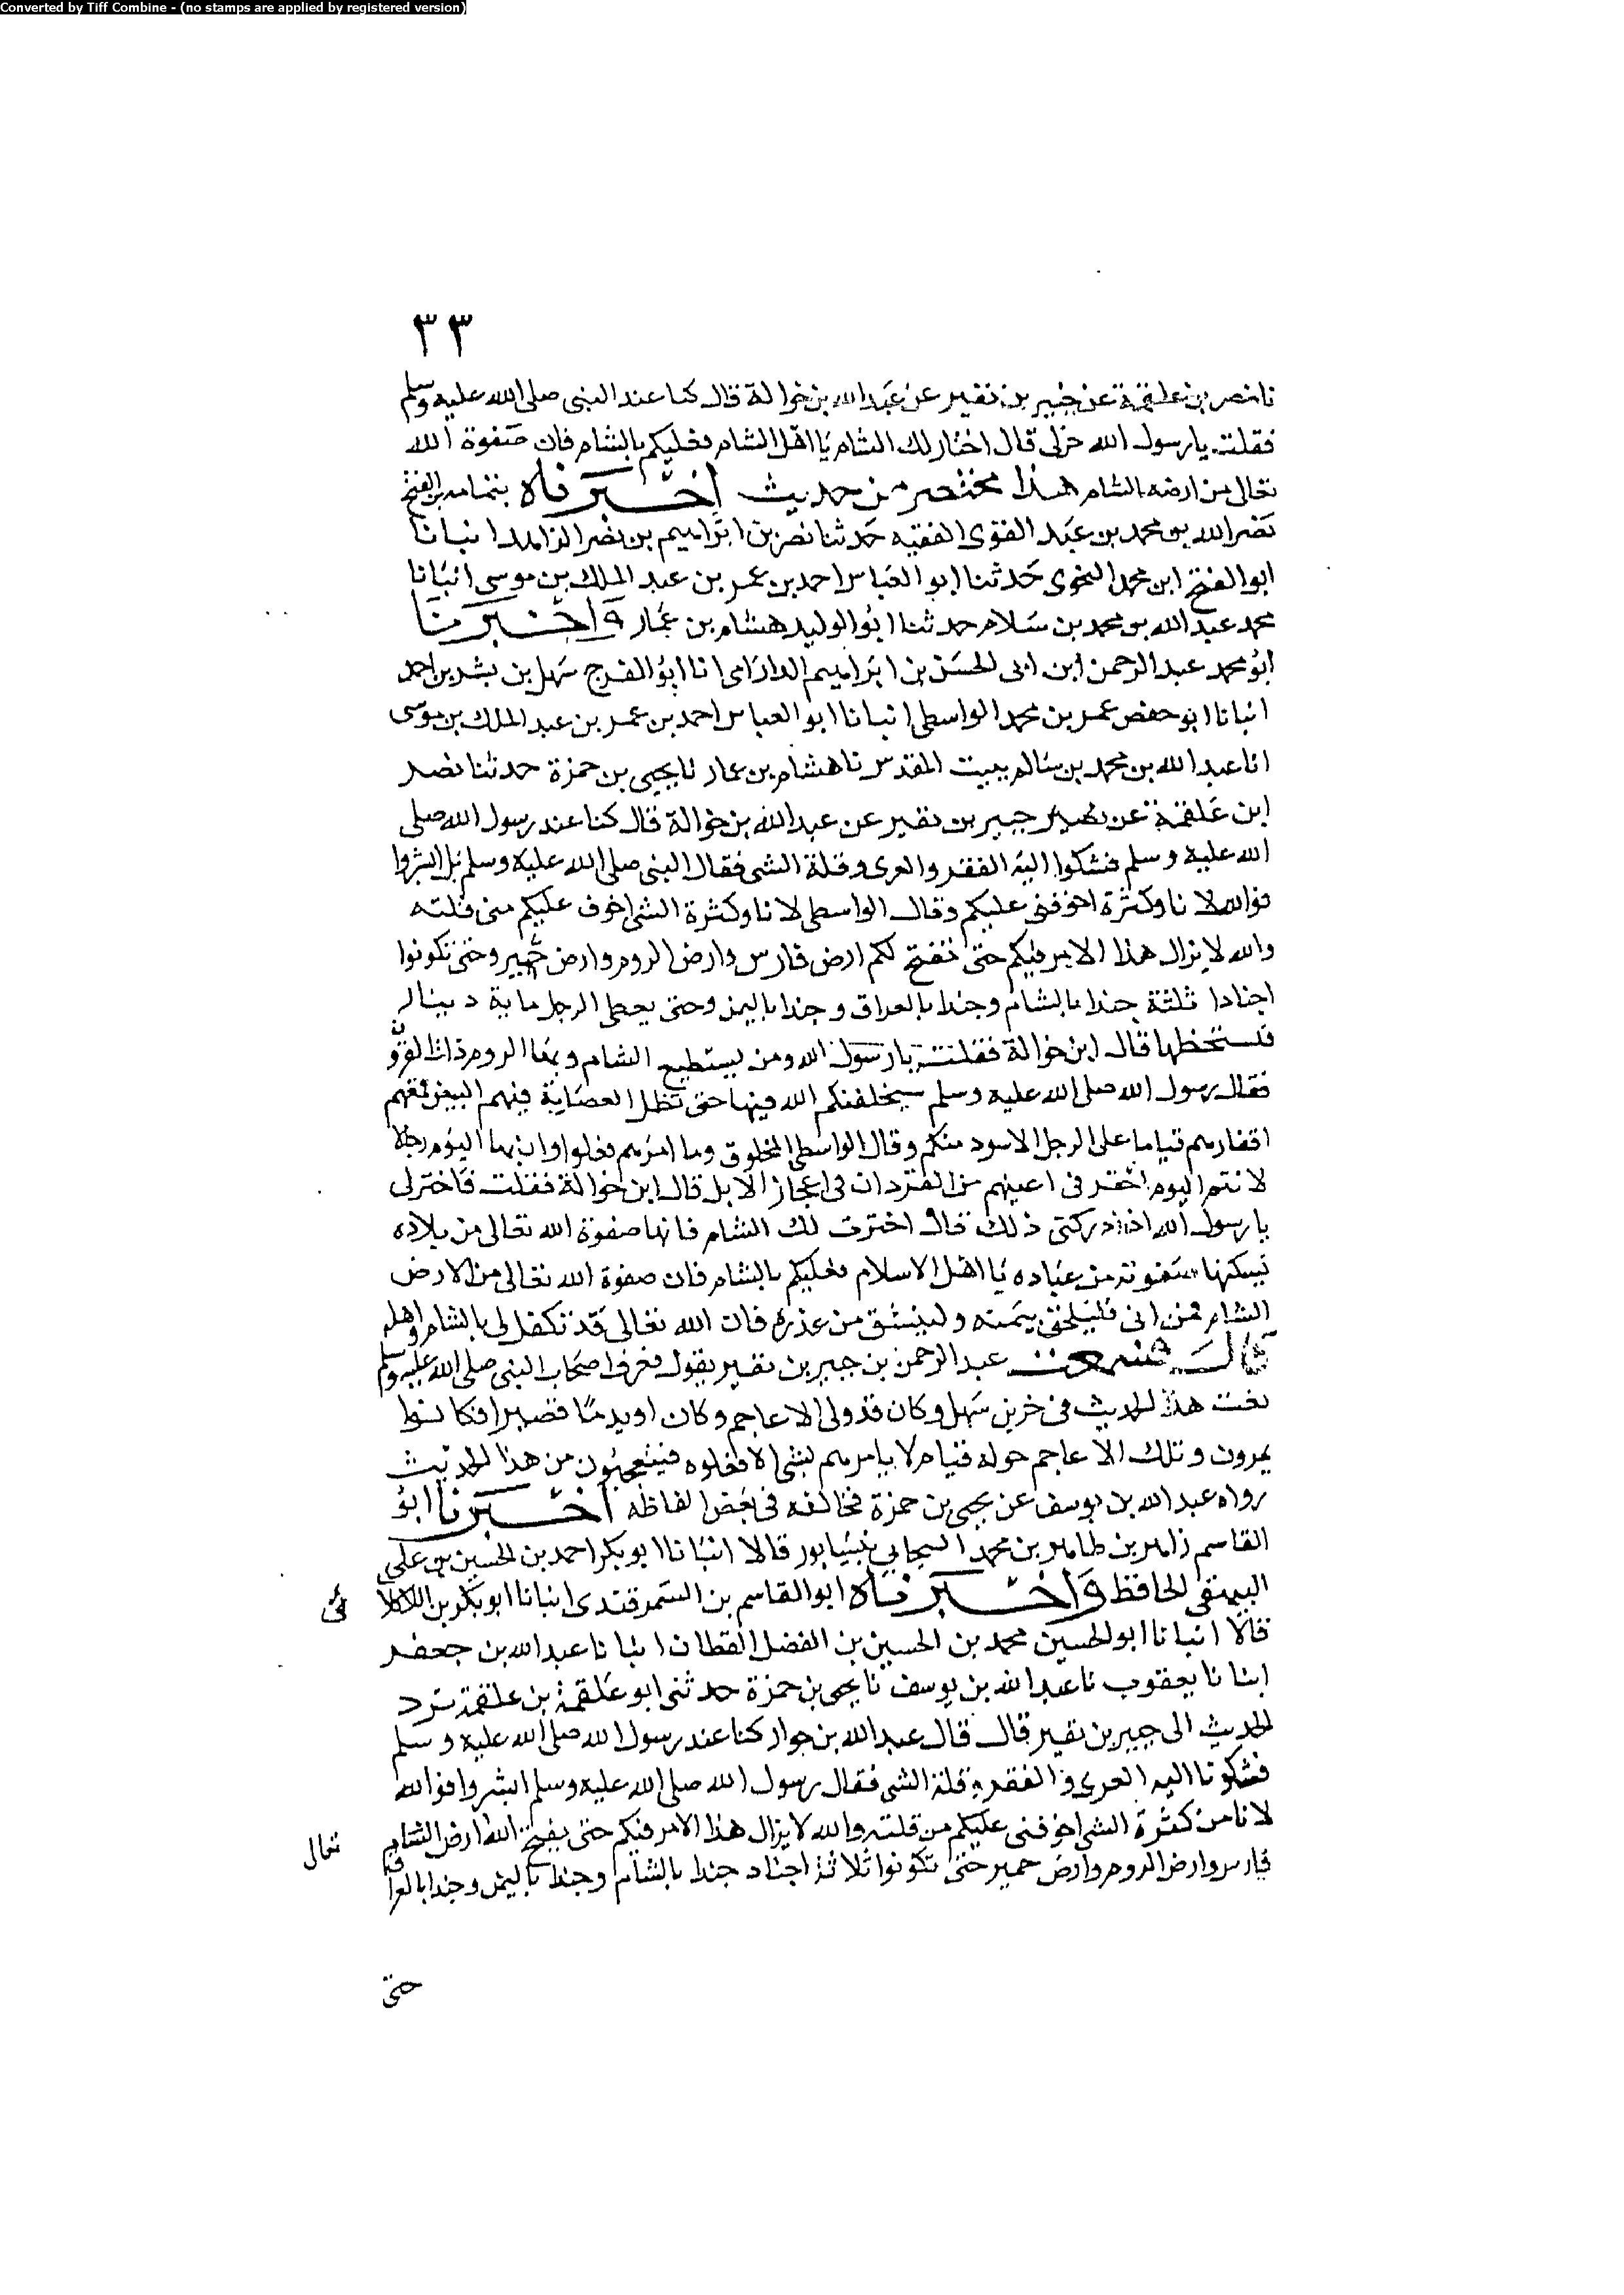 Converted by Tiff Combine - (no stamps are applied by registered version)
٣٣
نا نصر بن علقمة عن جبير بن نفير عن عبد الله بن خوالة قال كنا عند النبى صلى الله عليه وسلم
فقلت يا رسول الله خرلى قال اختار لك الشام يا اهل الشام فعليكم بالشام فان صفوة الله
تعالى من ارضه الشام هذا مختصر من حديث اخبرناه بتمامه ابو الفتح
نصر الله بن محمد بن عبد القوى الفقيه حدثنا نصر بن ابراهيم بن نصر الزاهد انبانا
ابو الفتح ابن محمد النحوى حدثنا ابو العباس احمد بن عمر بن عبد الملك بن موسى انبانا
محمد عبد الله بن محمد بن سلام حدثنا ابو الوليد هشام بن عمار واخبرنا
ابو محمد عبد الرحمن ابن ابى الحسن بن ابراهيم الدارامى انا ابو الفرج سهل بن بشر بن احمد
انبانا ابو حفص عمر بن محمد الواسطى انبانا ابو العباس احمد بن عمر بن عبد الملك بن موسى
انا عبد الله بن محمد بن سالم ببيت المقدس نا هشام بن عمار نا يحيى بن حمزة حدثنا نصر
ابن علقمة عن جبير بن نفير عن عبد الله بن خوالة قال كنا عند رسول الله صلى
الله عليه وسلم فشكوا اليه الفقر والعرى وقلة الشى فقال النبى صلى الله عليه وسلم بل ابشروا
فوالله لانا وكثرة اخوفنى عليكم وقال الواسطى لانا وكثرة الشى اخوف عليكم من قلته
والله لا يزال هذا الامر فيكم حتى تفتح لكم ارض فارس وارض الروم وارض حمير وحتى تكونوا
اجنادا ثلثة جندا بالشام وجندا بالعراق وجندا باليمن وحتى يعطى الرجل ماية دينار
فيستخطها قال ابن خوالة فقلت يا رسول الله ومن يستطيع الشام وبها الروم ذات القرون
فقال رسول الله صلى الله عليه وسلم سيخلفنكم الله فيها حتى تظل العصابة فيهم البيض قمصهم
اقفارهم قياما على الرجل الاسود منكم وقال الواسطى المحلوق وما امرهم فعلوا وان بها اليوم رجالا
لانتم اليوم احقر فى اعينهم من القردان فى اعجاز الابل قال ابن خوالة فقلت فاختر لى
يا رسول الله ان ادركنى ذلك قال اخترت لك الشام فانها صفوة الله تعالى من بلاده
يسكنها صفوته من عباده يا اهل الاسلام فعليكم بالشام فان صفوة الله تعالى من الارض
الشام فمن ابى فليلحق بيمنه وليستق من غدره فان الله تعالى قد تكفل لى بالشام واهله
قال فسمعت عبد الرحمن بن جبير بن نفير يقول فعرف اصحاب النبى صلى الله عليه وسلم
نعت هذا الحديث فى خربن سهل وكان قد ولى الاعاجم وكان اويدمًا قصيرا فكانوا
يمرون وتلك الاعاجم حوله قيام لا يامرهم بشى الا فعلوه فيتعجبون من هذا الحديث
رواه عبد الله بن يوسف عن يحيى بن حمزة فخالفه فى بعض الفاظه اخبرنا ابو
القاسم زاهر بن طاهر بن محمد السحابى بنيسابور قالا انبانا ابو بكر احمد بن الحسين بن على
البيهقى الحافظ واخبرناه ابو القاسم بن السمرقندى انبانا ابو بكر بن اللالكا
ئى
قالا انبانا ابو الحسين محمد بن الحسين بن الفضل القطان انبانا عبد الله بن جعفر
انبانا يعقوب نا عبد الله بن يوسف نا يحيى بن حمزة حدثنى ابو علقمة بن علقمة يرد
الحديث الى جبير بن نفير قال قال عبد الله بن جواد كنا عند رسول الله صلى الله عليه وسلم
فشكونا اليه العرى والفقر وقلة الشى فقال رسول الله صلى الله عليه وسلم ابشروا فوالله
لانا من كثرة الشى اخوفنى عليكم من قلته والله لا يزال هذا الامر فيكم حتى يفتح الله ارض الشام
تعالى
فارس وارض الروم وارض حمير حتى تكونوا ثلاثة اجناد جندا بالشام وجندا باليمن وجندا بالعراق
حتى